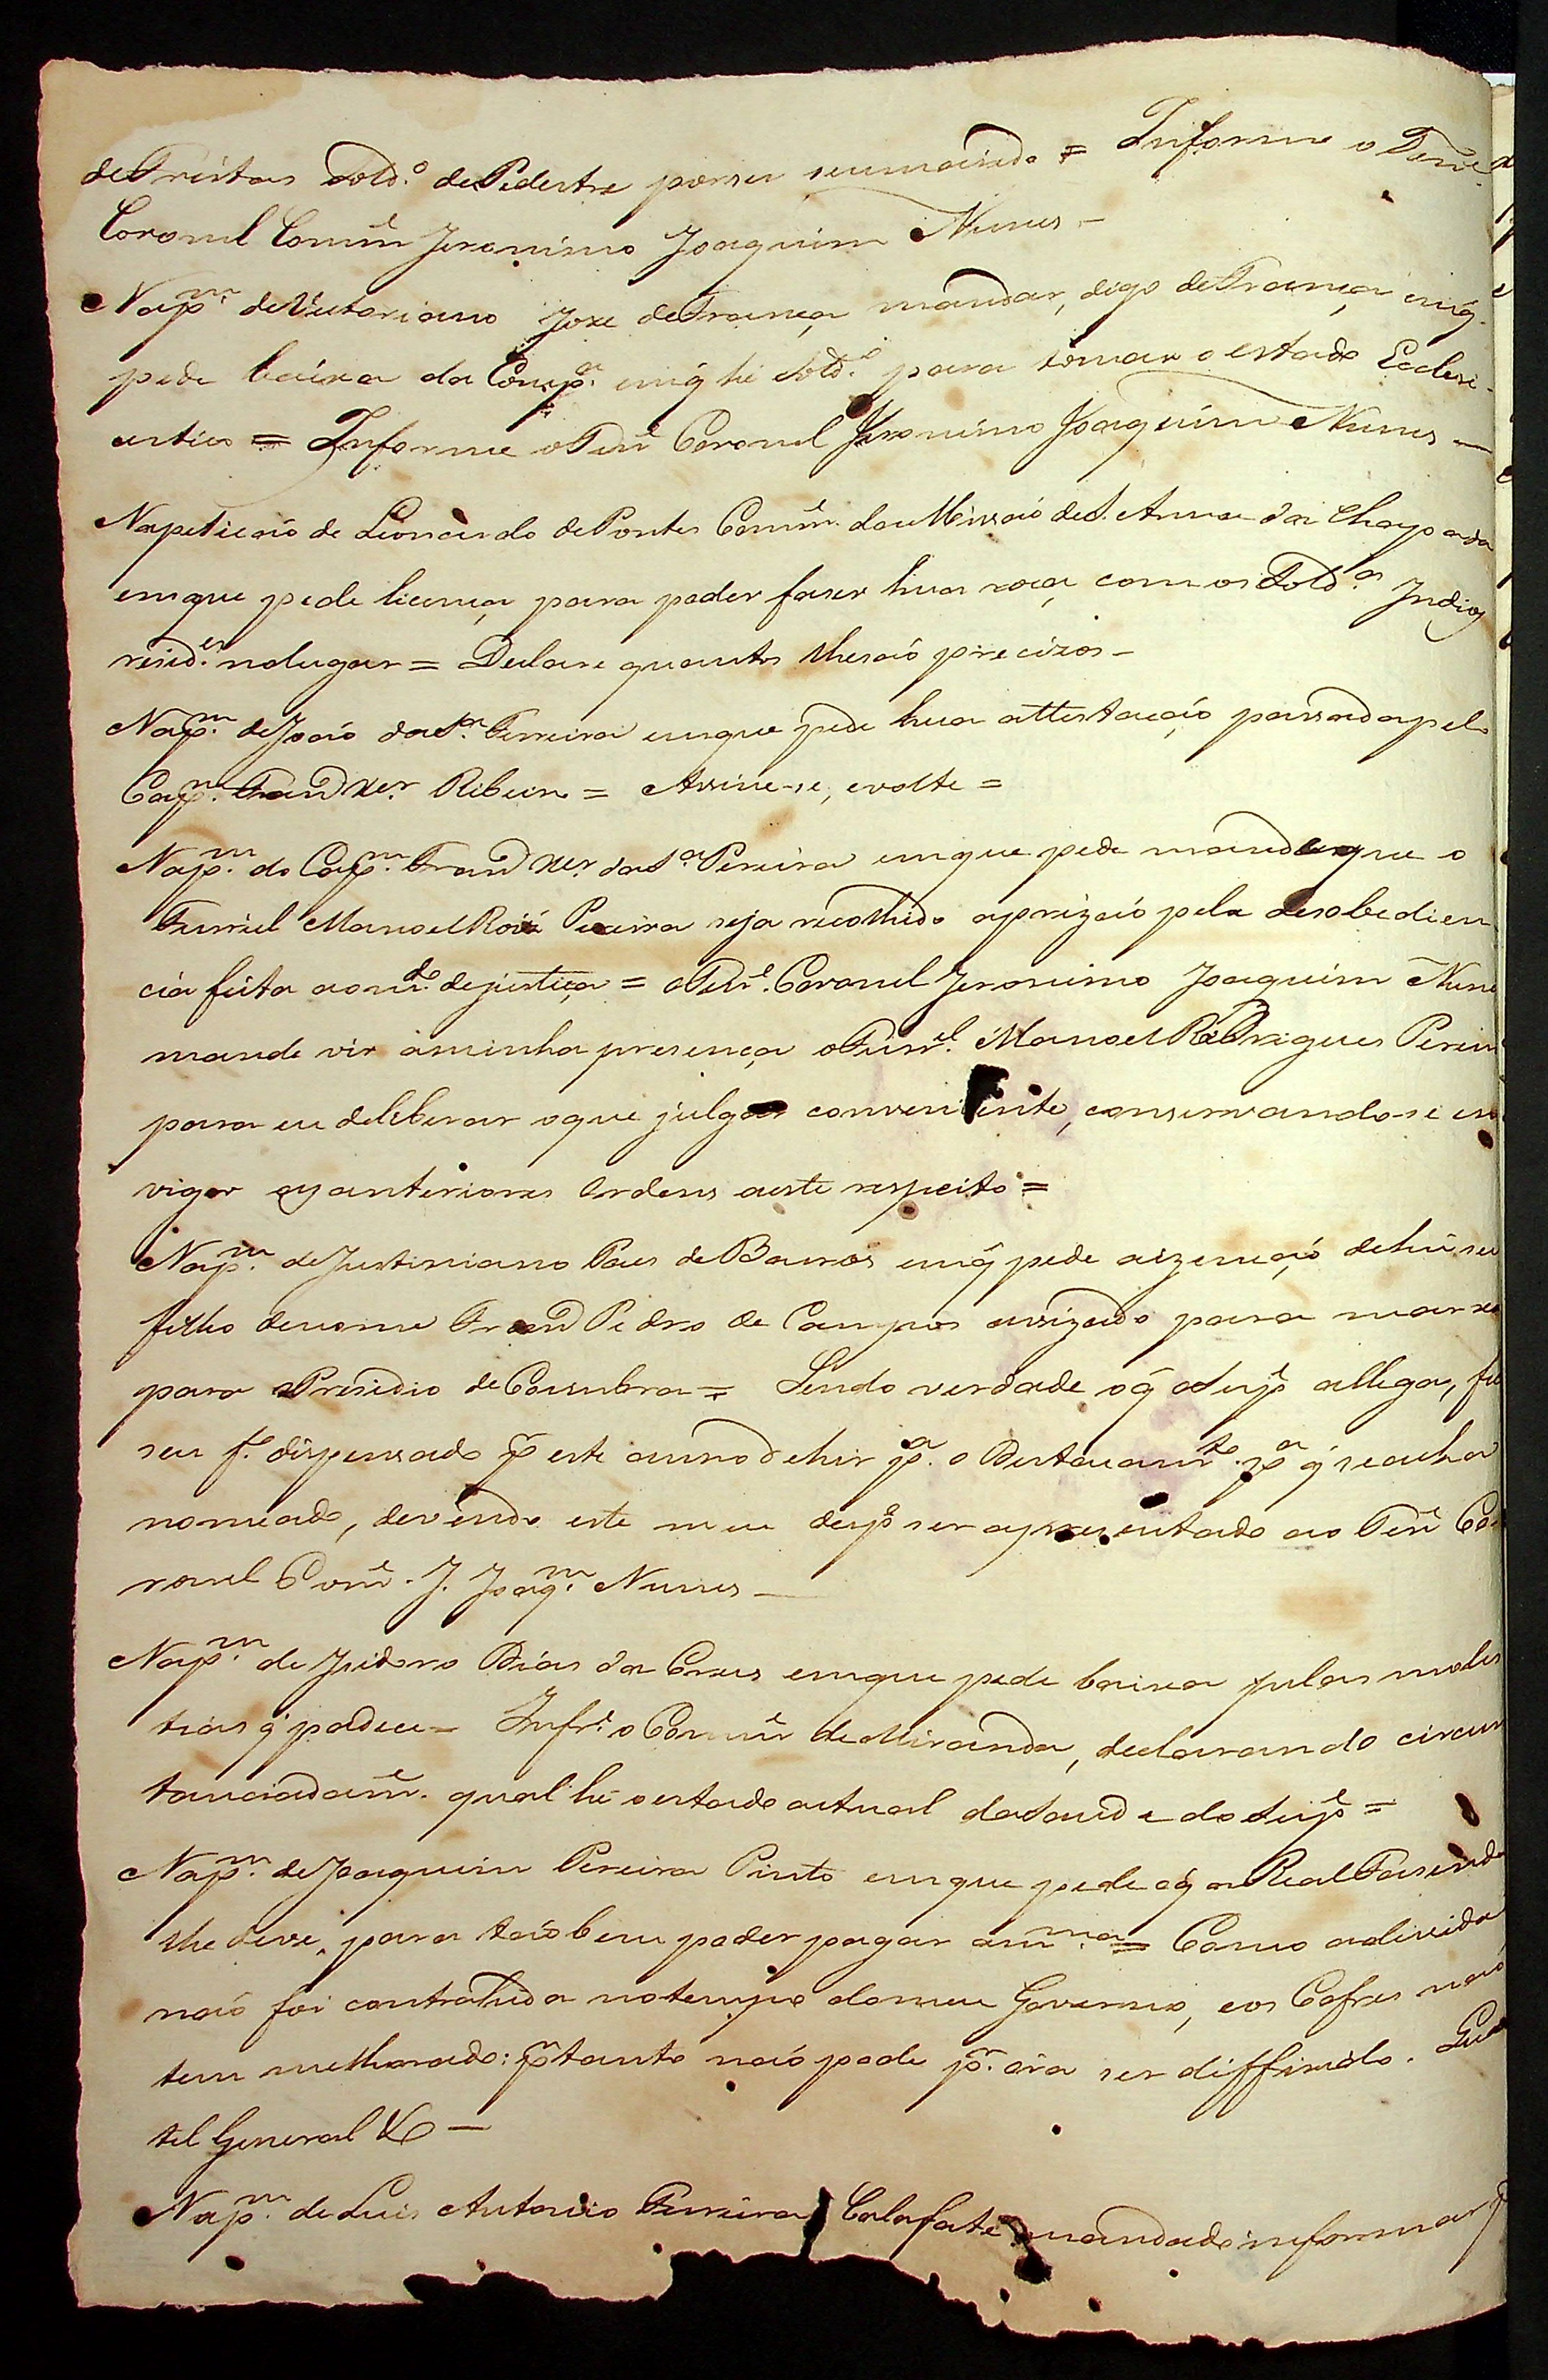 de Freitas Sold.º de Pedestre por ser seu marido = Informe o Tene.
Coronel Comm.e Jeronimo Joaquim Nunes -
Na p.m de Victoriano Joze de França mandar, digo de França em q̃
pede baixa da Comp.a em q̃ hé Sold.o para tomar o estado Eccleri-
astico = Informe o Ten.e Coronel Jeronimo Joaquim Nunes —
Na peticaõ de Leonardo de Pontes Comm.e da Missaõ de S. Anna da Chapada
em que pede licença para poder faser hua roça com os Sold.os Indios
resid.es no lugar = Declare quantos lhe saõ precizos -
Na p.m de Joaõ da S.a Ferreira em que pede hua attestaçaõ passada pelo
Cap.m Fran.co Xer. Ribeiro = Assine-se, e volte =
Na p.m do Cap.m Fran.co Xer. da S.a Pereira em que pede mandar que o
Furriel Manoel Roiz Pereira seja recolhido a prizaõ pela desobedien
cia feita ao m.do de justiça = o Ten.e Coronel Jeronimo Joaquim Nune
mande vir á minha presença o Furr.el Manoel Rodrigues Pereir
para eu deliberar o que julgar conveniente, conservando-se em
vigor as anteriores Ordens a este respeito =
Na p.m de Justiniano Paes de Barros em q̃ pede a izençaõ de hũ seu
filho de nome Fran.co Pedro de Campos avizado para marxar
para o Presidio de Coimbra = Sendo verdade o q̃ o Sup.e allega, fica
seu f.o dispensado p.r este anno de hir p.a o Destacam.to p.a q̃ se acha
nomeado, devendo este meu desp.o ser apresentado ao Ten.e Co
ronel Com.e J. Joaq.m Nunes —
Na p.m de Isidoro Dias da Crus em que pede baixa pelas moles
tias q̃ padece = Infr.e o Comm.e de Miranda, declarando circuns
tanciadam.e qual hé o estado actual da saude do Sup.e =
Na p.m de Joaquim Pereira Pinto em que pede o q̃ a Real Fasenda
lhe deve, para taõbem poder pagar a m.ma = Como a divida
naõ foi contrahida no tempo do meu Governo, e os Cofres naõ
tem melhorado: p.r tanto naõ pode p.r óra ser differido. Quar
tel General &c —
Na p.m de Luis Antonio Ferreira Calafate mandado informar p